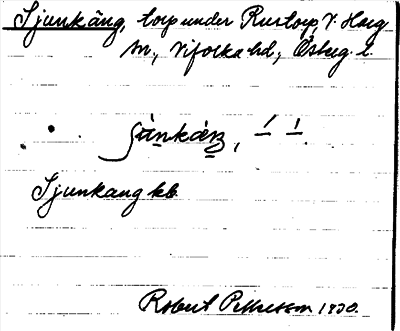 Sjunkäng, torp under Rustorp, V. Harg
sn., Vifolka hd, Östug. l.
Sjunkang kb
Robert Pettersson 1930.